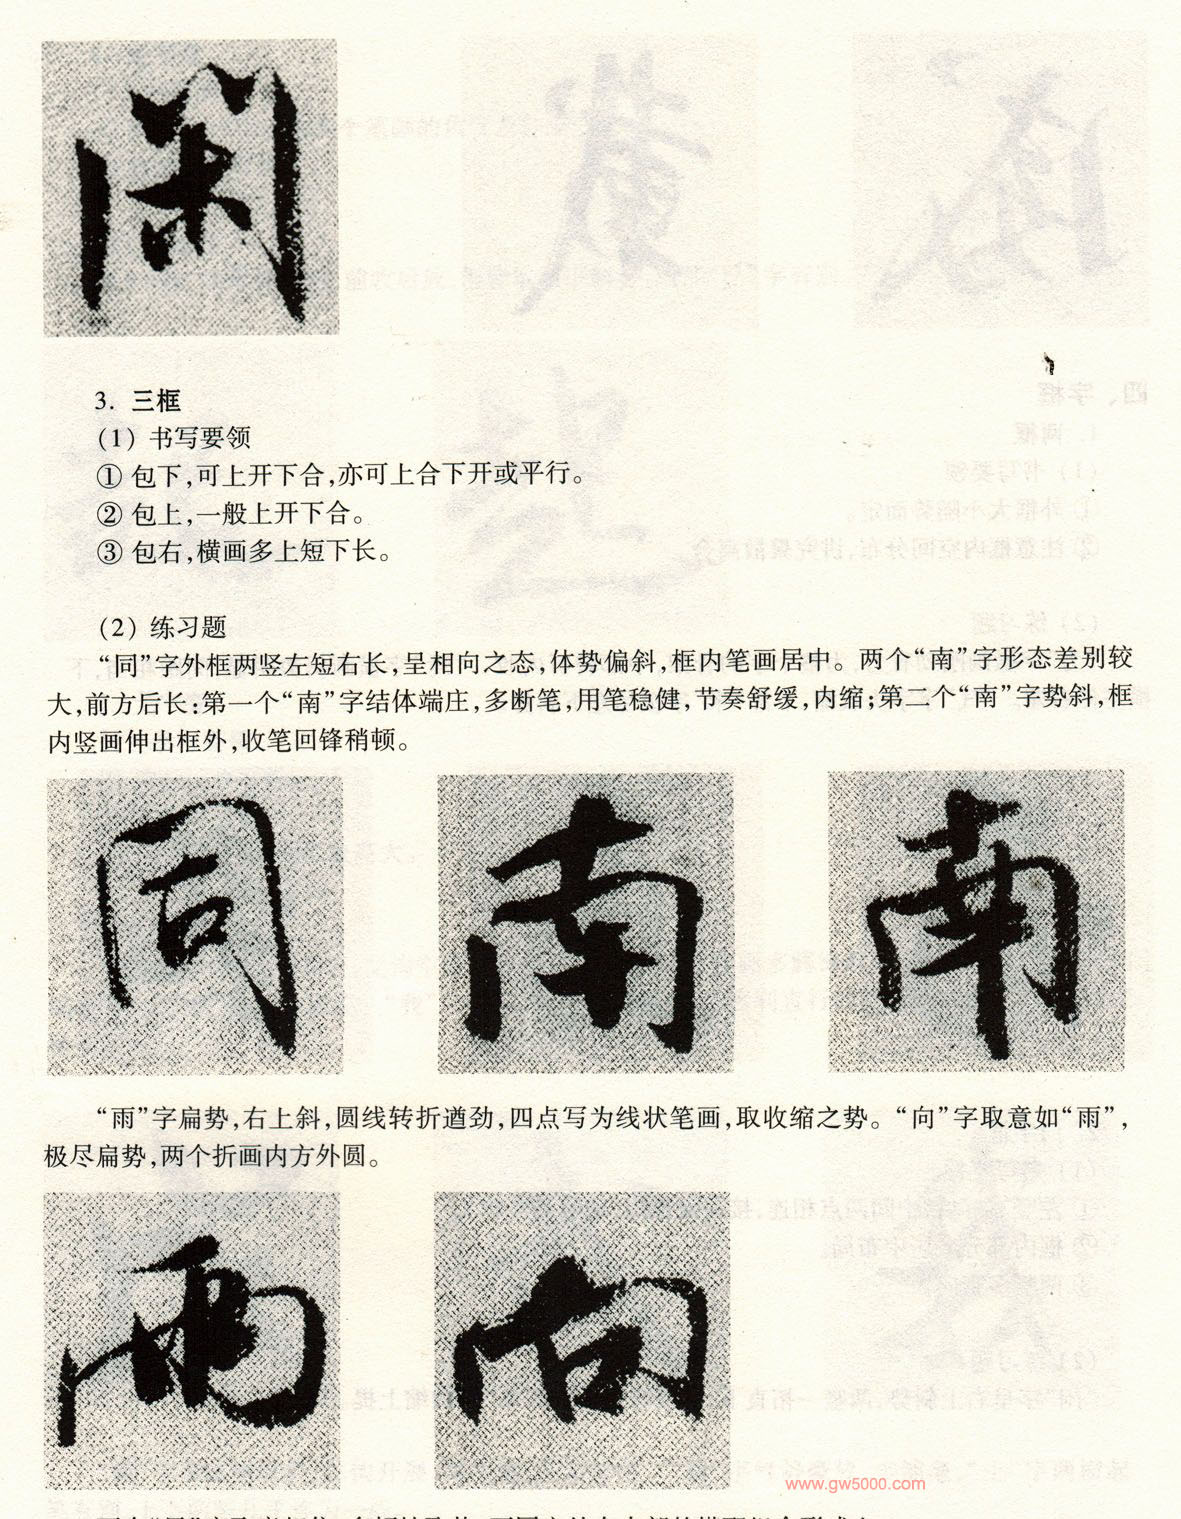 闲
3. 三框
(1) 书写要领
① 包下,可上开下合,亦可上合下开或平行。
② 包上,一般上开下合。
③ 包右,横画多上短下长。
(2) 练习题
“同”字外框两竖左短右长,呈相向之态,体势偏斜,框内笔画居中。两个“南”字形态差别较
大,前方后长:第一个“南”字结体端庄,多断笔,用笔稳健,节奏舒缓,内缩;第二个“南”字势斜,框
内竖画伸出框外,收笔回锋稍顿。
同 南 南
“雨”字扁势,右上斜,圆线转折遒劲,四点写为线状笔画,取收缩之势。“向”字取意如“雨”,
极尽扁势,两个折画内方外圆。
雨 向
www.gw5000.com